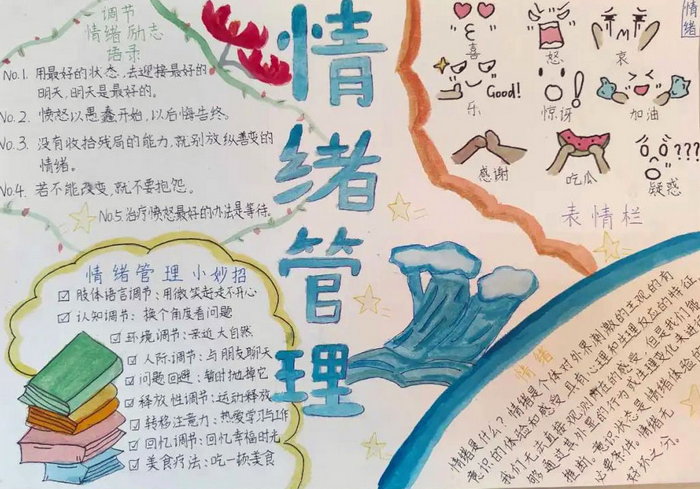 调节
情绪励志
语录
No.1. 用最好的状态,去迎接最好的
明天,明天是最好的。
No.2. 愤怒以愚蠢开始,以后悔告终。
No.3. 没有收拾残局的能力,就别放纵善变的
情绪。
No.4. 若不能改变,就不要抱怨。
No.5 治疗愤怒最好的办法是等待。
情绪管理
情绪
喜
怒
哀
乐
Good!
惊讶
加油
感谢
吃瓜
???
疑惑
表情栏
情绪管理小妙招
肢体语言调节:用微笑赶走不开心
认知调节:换个角度看问题
环境调节:亲近大自然
人际调节:与朋友聊天
问题回避:暂时抛掉它
释放性调节:运动释放
转移注意力:热爱学习与工作
回忆调节:回忆幸福时光
美食疗法:吃一顿美食
情绪
情绪是什么?情绪是个体对外界刺激的主观的有
意识的体验和感受,具有心理和生理反应的特征,
我们无法直接观测内在的感受,但是我们能
够通过其外显的行为或生理变化来进行
推断。意识状态是情绪体验的
必要条件。情绪无
好坏之分。